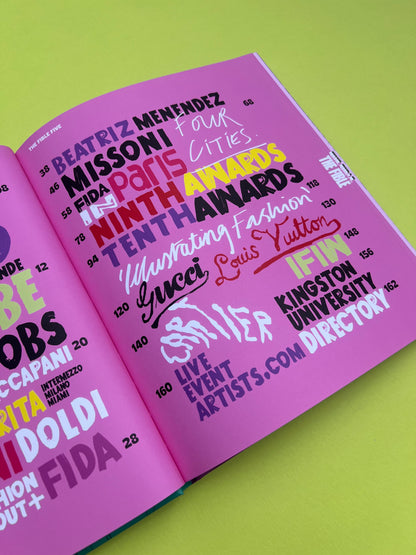 THE FIDE FIVE
38 BEATRIZ MENENDEZ
46 MISSONI FOUR CITIES. 68
58 FIDA IN PARIS
78 NINTH AWARDS
94 TENTH AWARDS 118
'Illustrating Fashion' 130
120 Gucci Louis Vuitton
140 IFIN 148
KINGSTON UNIVERSITY 156
160 LIVE EVENT ARTISTS.COM
DIRECTORY 162
98
NDE 12
BE
OBS
CCAPANI 20
RITA INTERMEZZO MILANO MIAMI
NI DOLDI
HION
OUT+ FIDA 28